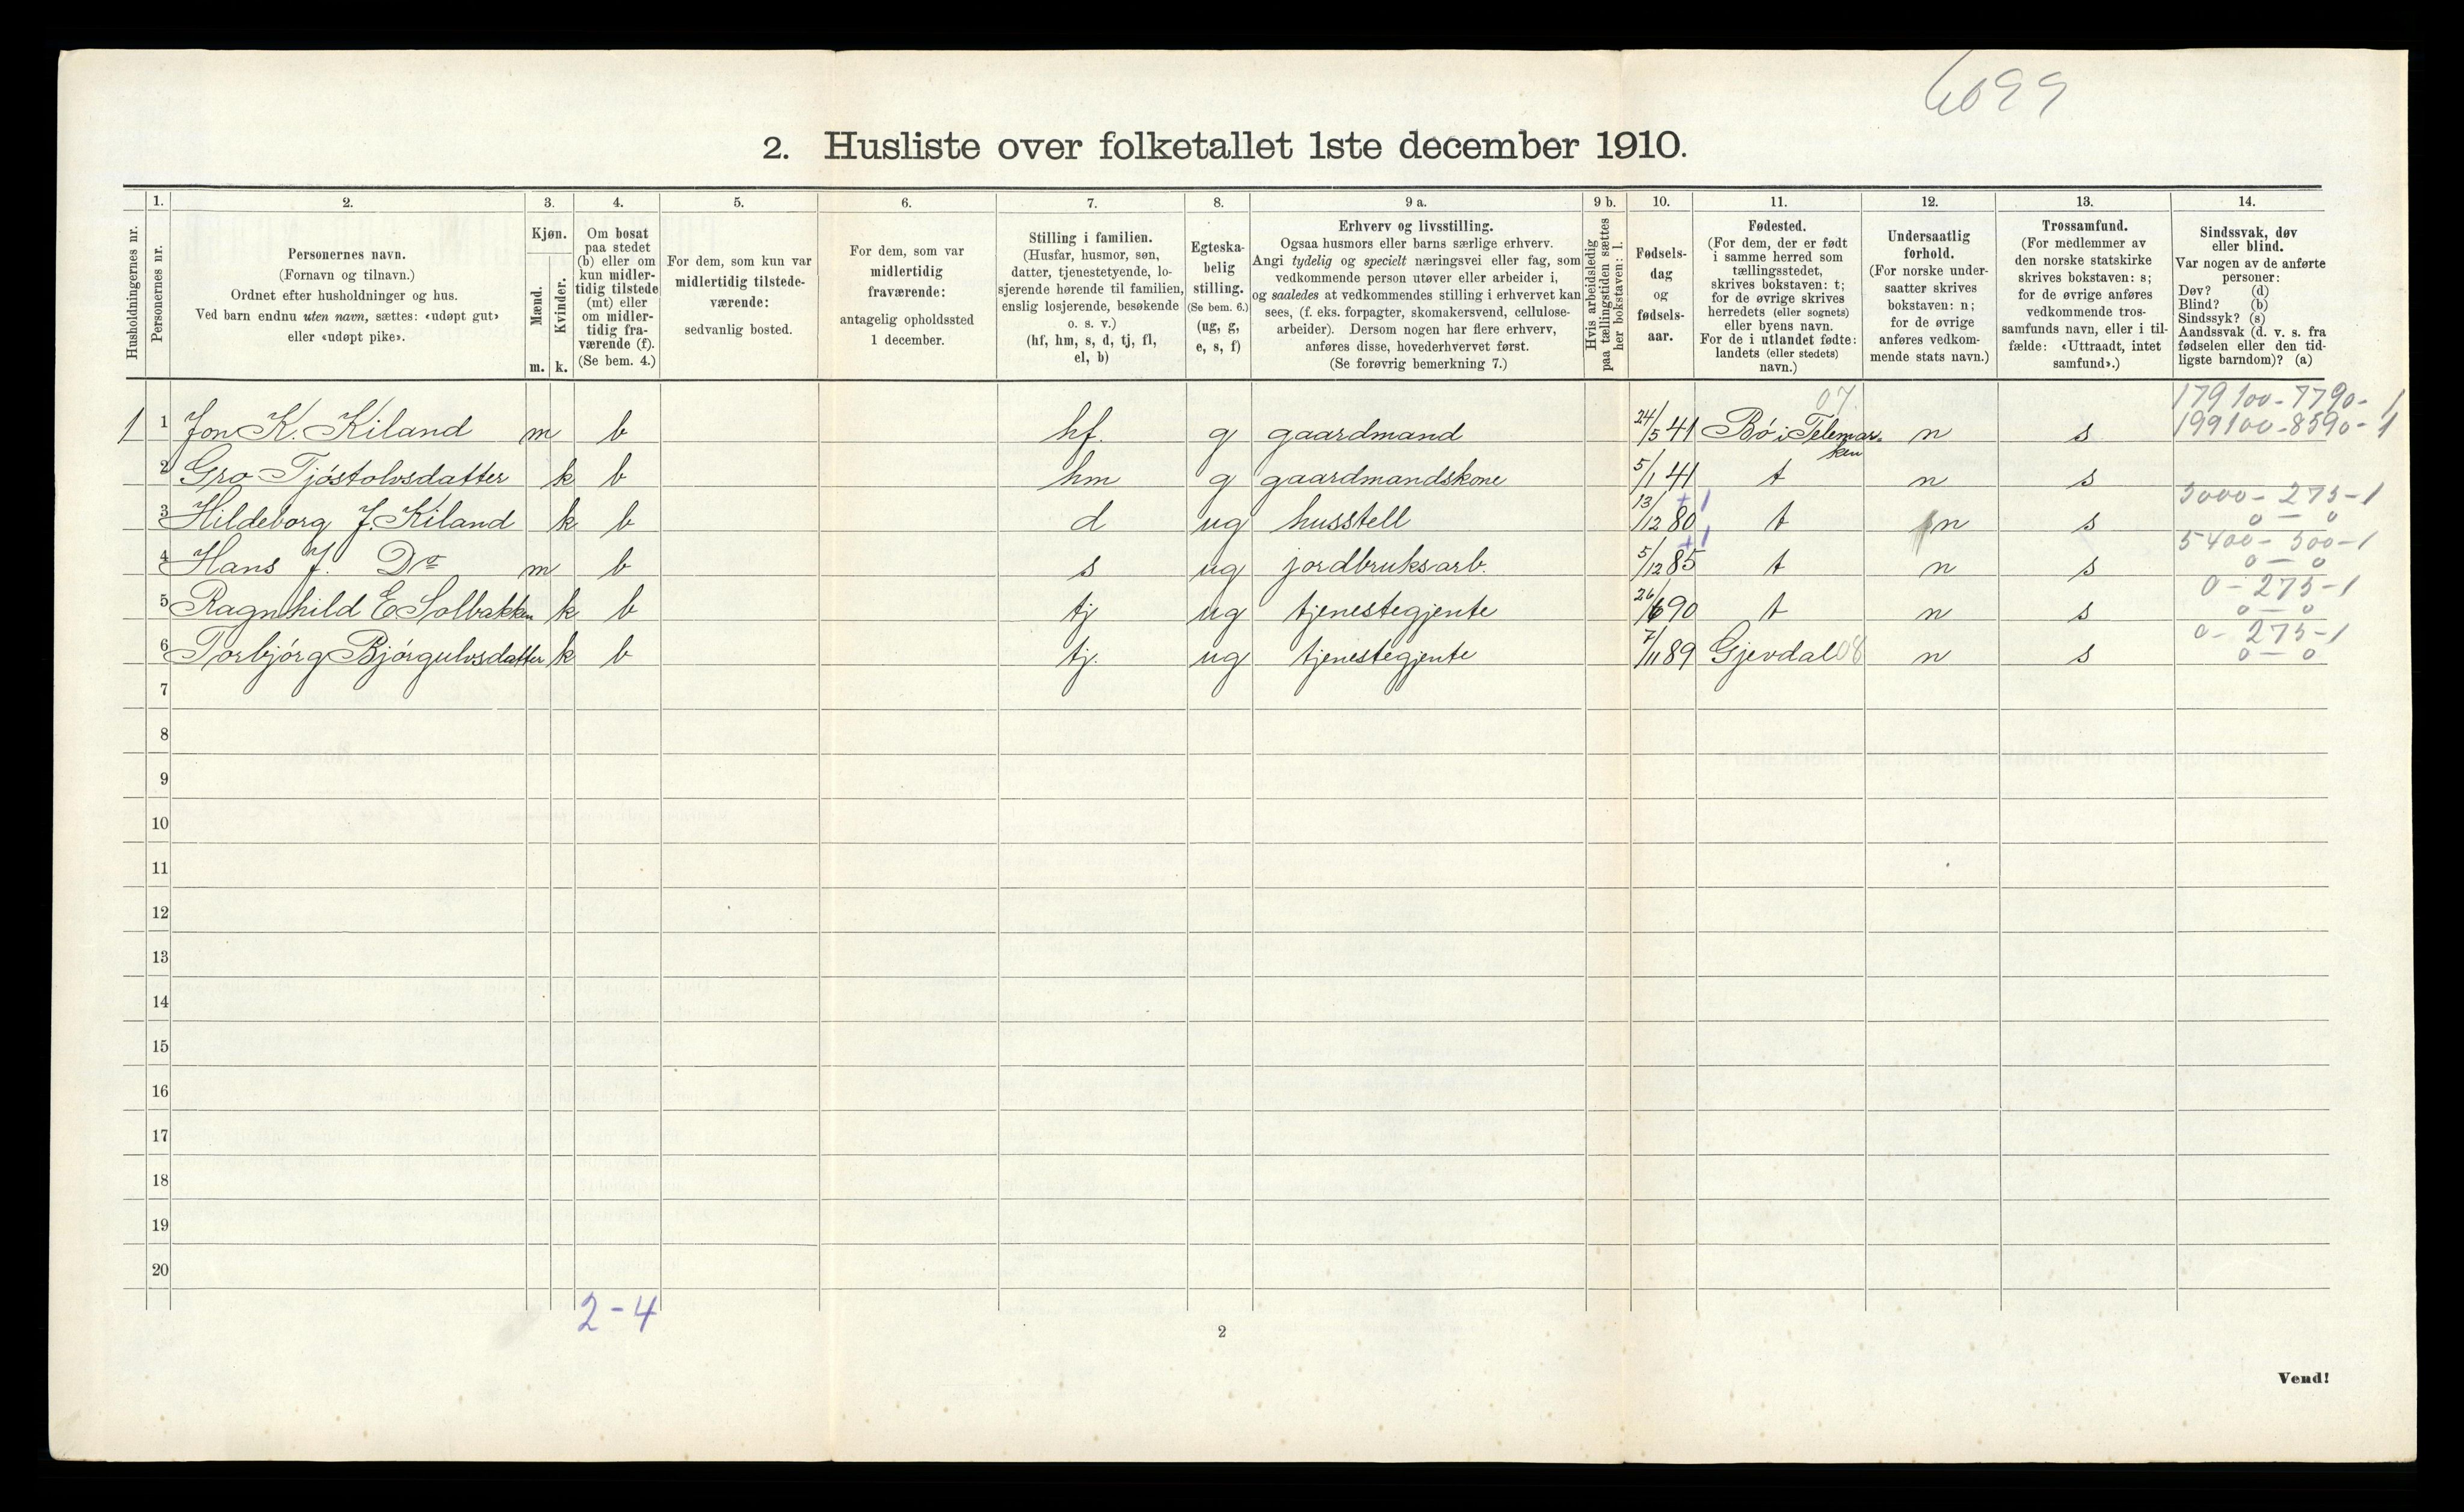 6099
2. Husliste over folketallet 1ste december 1910.
1. 2. 3. 4. 5. 6. 7. 8. 9 a. 9 b. 10. 11. 12. 13. 14.
Husholdningernes nr.
Personernes nr.
Personernes navn.
(Fornavn og tilnavn.)
Ordnet efter husholdninger og hus.
Ved barn endnu uten navn, sættes: «udøpt gut»
eller «udøpt pike».
Kjøn.
Mænd.
Kvinder.
m. k.
Om bosat
paa stedet
(b) eller om
kun midler-
tidig tilstede
(mt) eller
om midler-
tidig fra-
værende (f).
(Se bem. 4.)
For dem, som kun var
midlertidig tilstede-
værende:
sedvanlig bosted.
For dem, som var
midlertidig
fraværende:
antagelig opholdssted
1 december.
Stilling i familien.
(Husfar, husmor, søn,
datter, tjenestetyende, lo-
sjerende hørende til familien,
enslig losjerende, besøkende
o. s. v.)
(hf, hm, s, d, tj, fl,
el, b)
Egteska-
belig
stilling.
(Se bem. 6.)
(ug, g,
e, s, f)
Erhverv og livsstilling.
Ogsaa husmors eller barns særlige erhverv.
Angi tydelig og specielt næringsvei eller fag, som
vedkommende person utøver eller arbeider i,
og saaledes at vedkommendes stilling i erhvervet kan
sees, (f. eks. forpagter, skomakersvend, cellulose-
arbeider). Dersom nogen har flere erhverv,
anføres disse, hovederhvervet først.
(Se forøvrig bemerkning 7.)
Hvis arbeidsledig
paa tællingstiden sættes
her bokstaven: l.
Fødsels-
dag
og
fødsels-
aar.
Fødested.
(For dem, der er født
i samme herred som
tællingsstedet,
skrives bokstaven: t;
for de øvrige skrives
herredets (eller sognets)
eller byens navn.
For de i utlandet fødte:
landets (eller stedets)
navn.)
Undersaatlig
forhold.
(For norske under-
saatter skrives
bokstaven: n;
for de øvrige
anføres vedkom-
mende stats navn.)
Trossamfund.
(For medlemmer av
den norske statskirke
skrives bokstaven: s;
for de øvrige anføres
vedkommende tros-
samfunds navn, eller i til-
fælde: «Uttraadt, intet
samfund».)
Sindssvak, døv
eller blind.
Var nogen av de anførte
personer:
Døv? (d)
Blind? (b)
Sindssyk? (s)
Aandssvak (d. v. s. fra
fødselen eller den tid-
ligste barndom)? (a)
07. 179100-7790-1
1 1 Jon K. Kiland m b hf. g gaardmand 24/5 41 Bø i Telemar- n s 199100-8590-1
ken
2 Gro Tjøstolvsdatter k b hm g gaardmandskone 5/1 41 t n s
+1 5000-275-1
3 Hildeborg J. Kiland k b d ug husstell 13/12 80 t n s 0-0
+1 5400-500-1
4 Hans J. Do m b s ug jordbruksarb. 5/12 85 t n s 0-0
0-275-1
5 Ragnhild E Solbakken k b tj ug tjenestegjente 26/6 90 t n s 0-0
0-275-1
6 Torbjørg Bjørgulvsdatter k b tj. ug tjenestegjente 7/11 89 Gjevdal 08 n s 0-0
7
8
9
10
11
12
13
14
15
16
17
18
19
20
2-4
2
Vend!